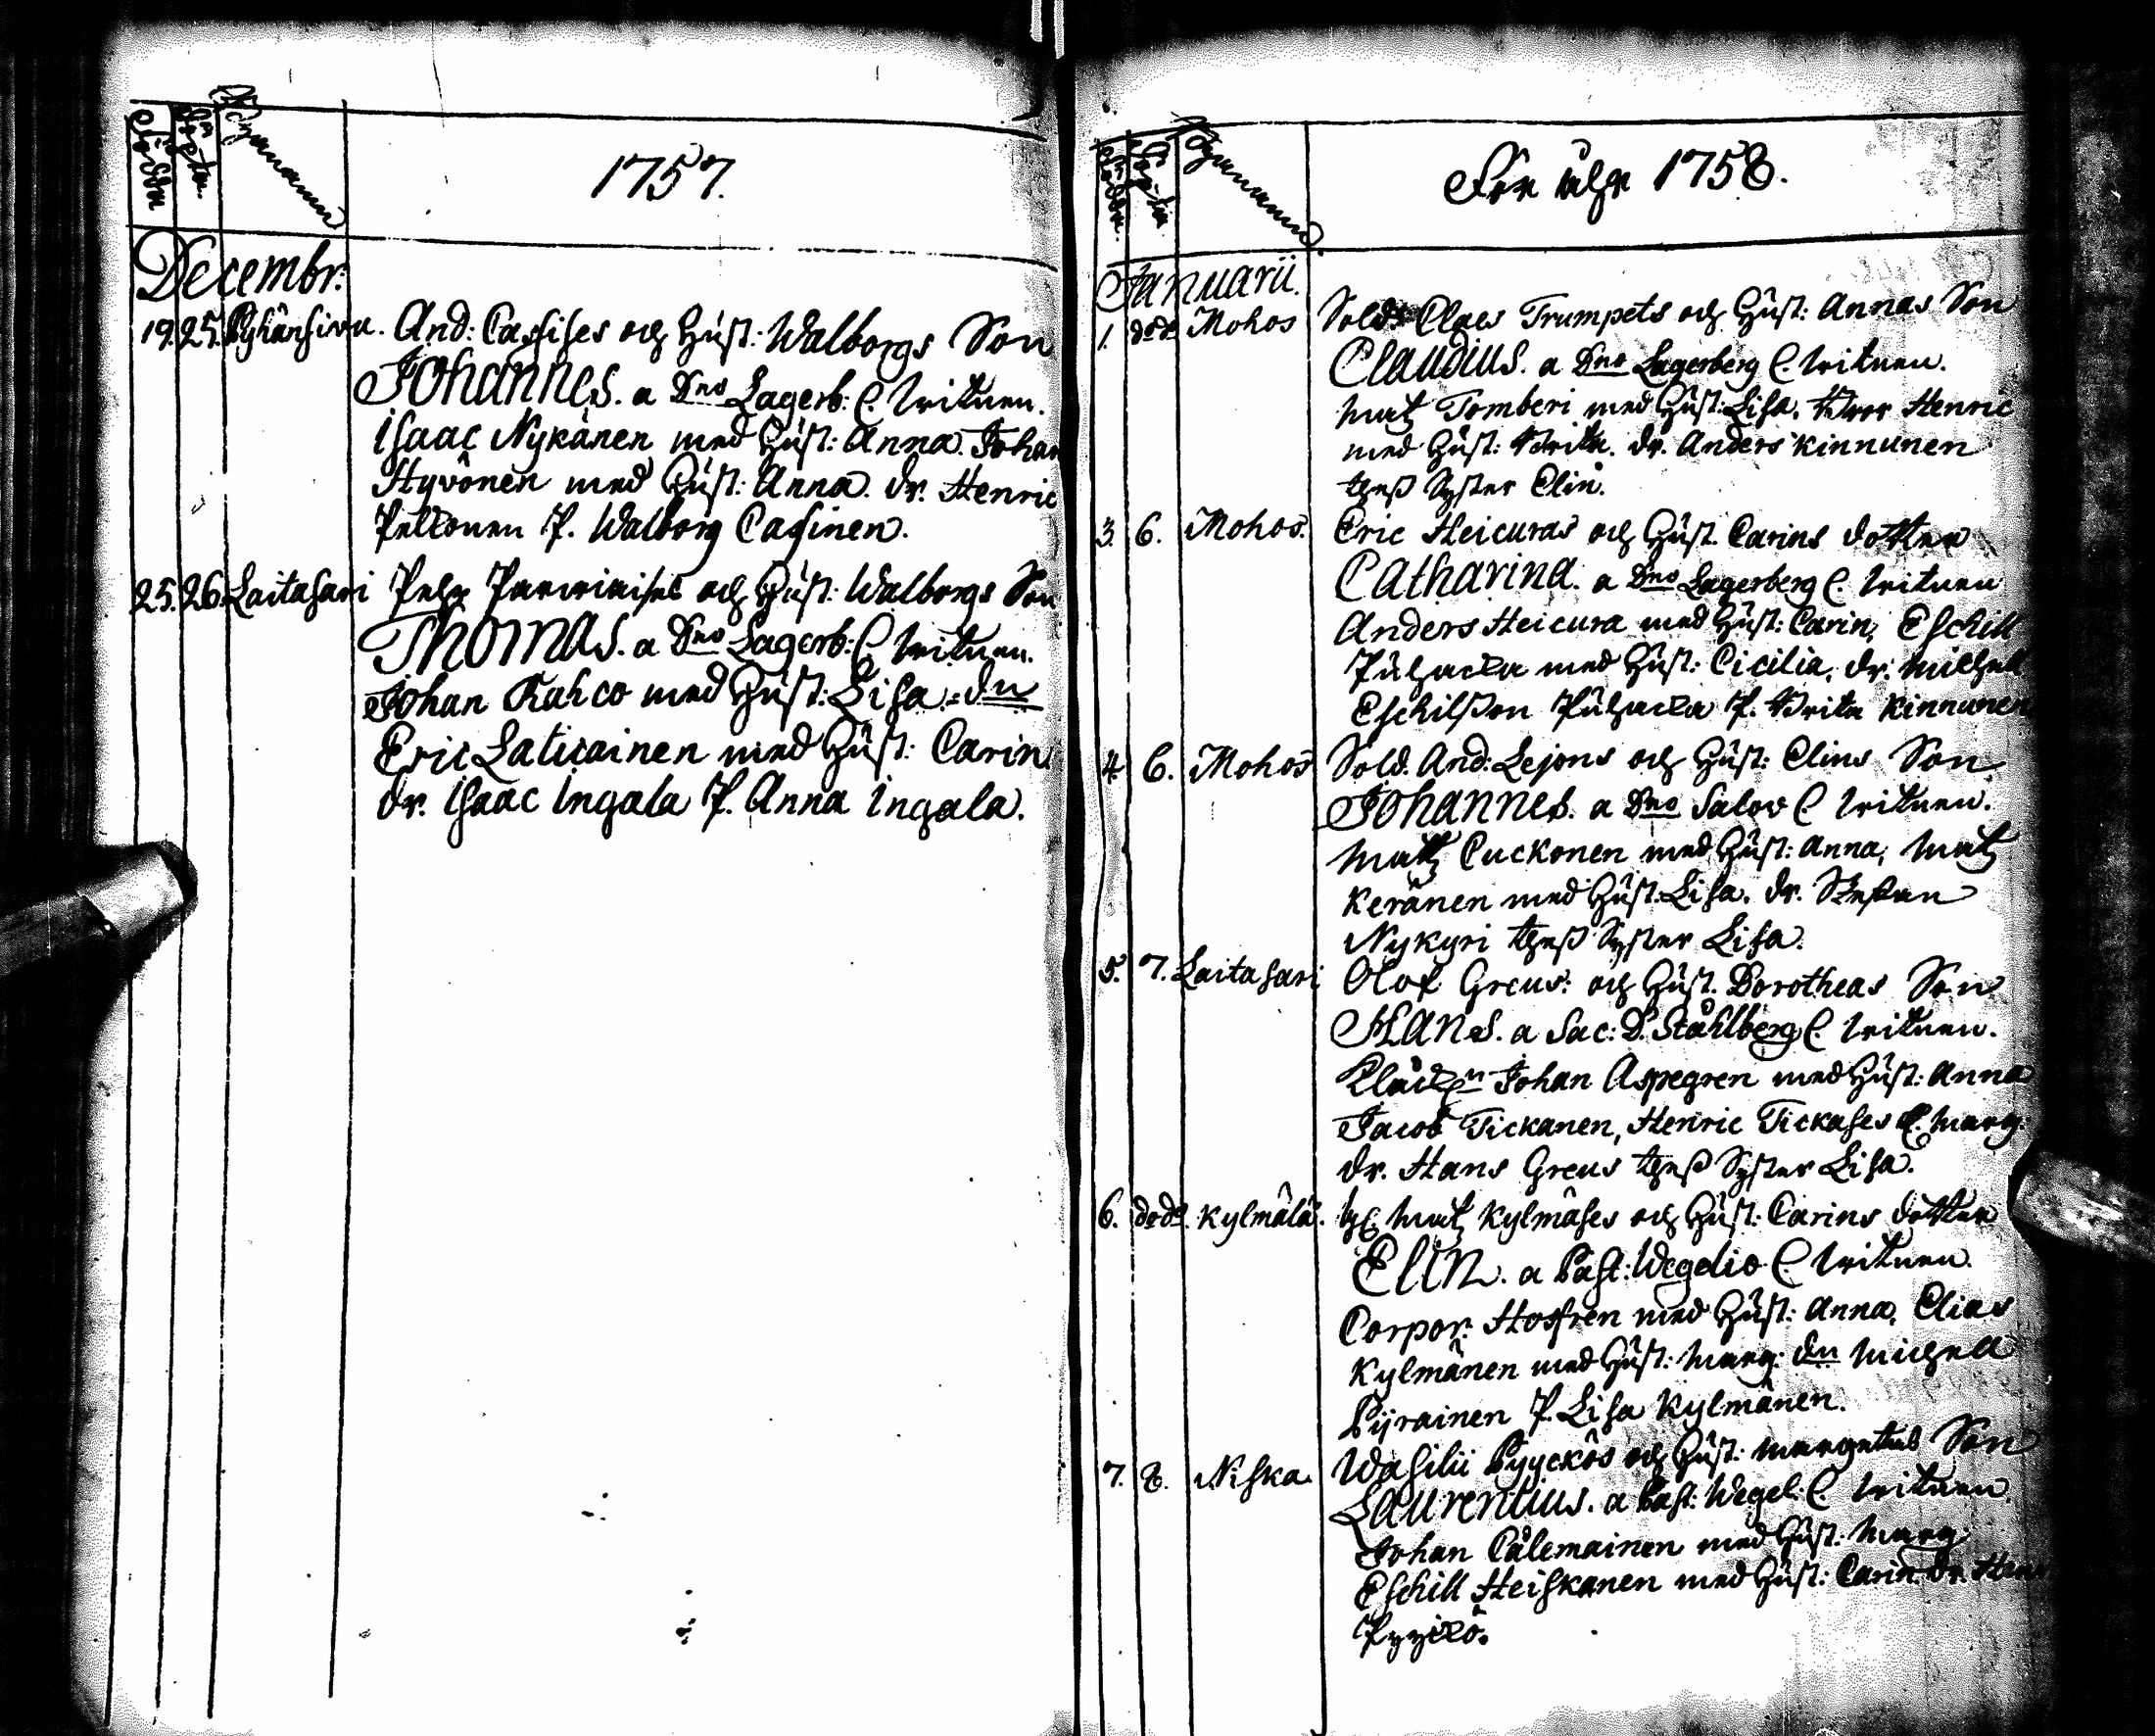 Födder
Döpter
Byanamn
1757.
Decembr:
19. 25. Pyhänsivu. And: Cassises och Hust: Walborgs Son
Johannes. a Dno Lagerb: C. wittnen.
Isaac Nykänen med Hust: Anna. Johan
Hyvönen med Hust: Anna. dr. Henric
Peltonen P. Walborg Casinen.
25. 26. Laitasari Pehr Parviaises och Hust: Walborgs Son
Thomas. a Dno Lagerb: C wittnen.
Johan Kahco med Hust: Lisa. dn
Eric Laticainen med Hust: Carin
dr. Isaac Ingala P. Anna Ingala.
Födder
Döpter
Byanamn
För åhr 1758.
Januarii.
1. dode Mohos Sold: Claes Trumpets och Hust: Annas Son
Claudius. a Dno Lagerberg C. wittnen.
Matz Tomberi med Hust: Lisa. Henric
med Hust: Brita. dr. Anders Kinnunen
thess Syster Elin.
3. 6. Mohos. Eric Heicuras och Hust. Carins dotter
Catharina. a Dno Lagerberg C. wittnen
Anders Heicura med Hust: Carin, Eschill
Puhacka med Hust: Cicilia. dr: Michell
Eschilsson Puhacka P. Brita Kinnunen
4. 6. Mohos Sold. And: Lejons och Hust: Elins Son
Johannes. a Dno Salov C wittnen.
Matz Cuckonen med Hust: Anna, Matz
Keränen med Hust: Lisa. dr. Stephan
Nykyri thess Syster Lisa.
5. 7. Laitasari Olof Greus: och Hust. Dorotheas Son
Hans. a Sac: D. Ståhlberg C. wittnen.
Johan Aspegren med Hust: Anna
Jacob Tickanen, Henric Tickases E. Marg:
dr. Hans Greus thess Syster Lisa.
6. dode Kylmälä. Matz Kylmäses och Hust: Carins dotter
Elin. a Past: Wegelio C. wittnen.
Corpor: Hoffren med Hust: Anna, Elias
Kylmänen med Hust: Marg: dn Michell
Pijrainen P. Lisa Kylmänen.
7. 8. Niska. Wasilii Pyyckös och Hust: Margetas Son
Laurentius. a Past: Wegel: C. wittnen.
Johan Cälemainen med Hust: Marg
Eschill Heiskanen med Hust: Carin. dr. Henr
Pyyckö.